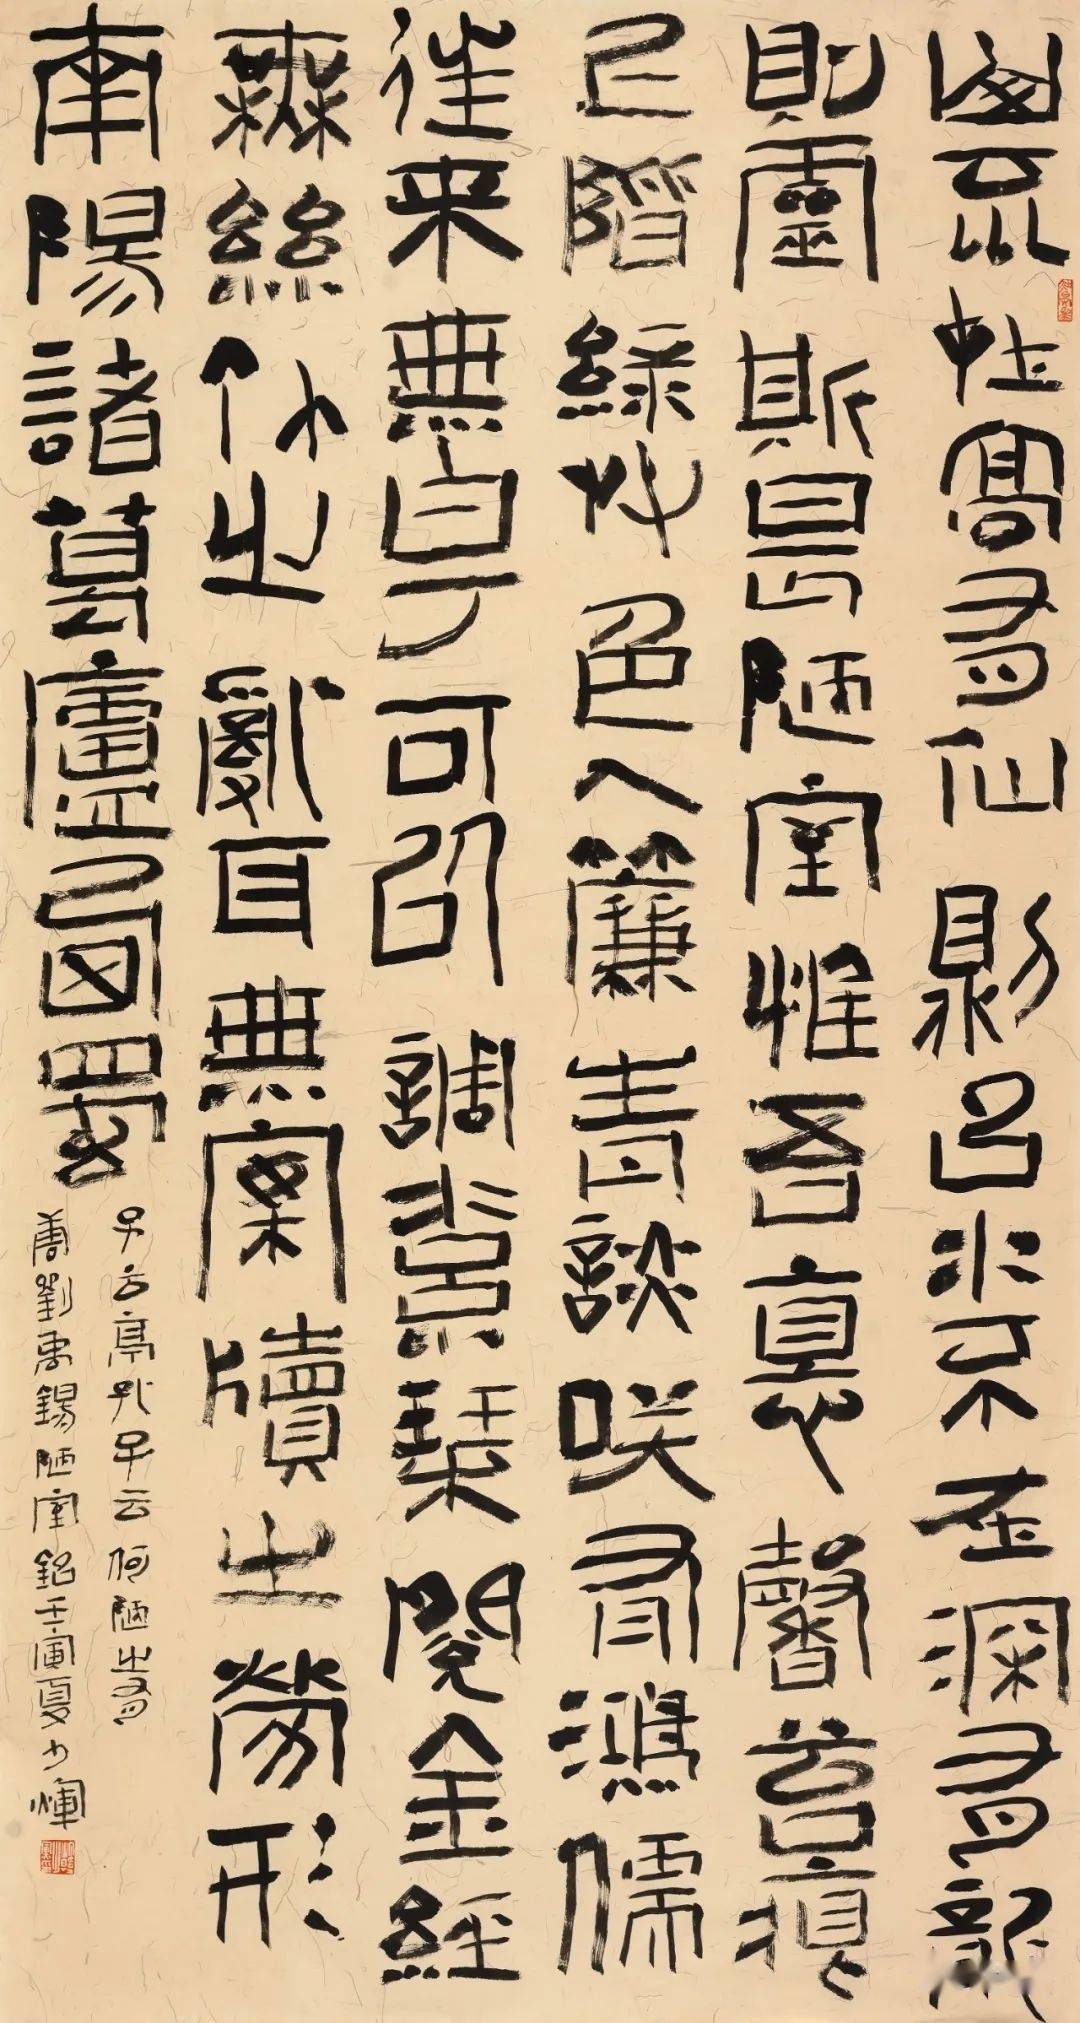 山不在高有仙則名水不在深有龍
則靈斯是陋室惟吾惪馨苔痕
上階綠艸色入簾青談咲有鴻儒
往來無白丁可以調素琴閱金經
無絲竹之亂耳無案牘之勞形
南陽諸葛廬西蜀
子云亭孔子云何陋之有
唐劉禹錫陋室銘壬寅夏少煇